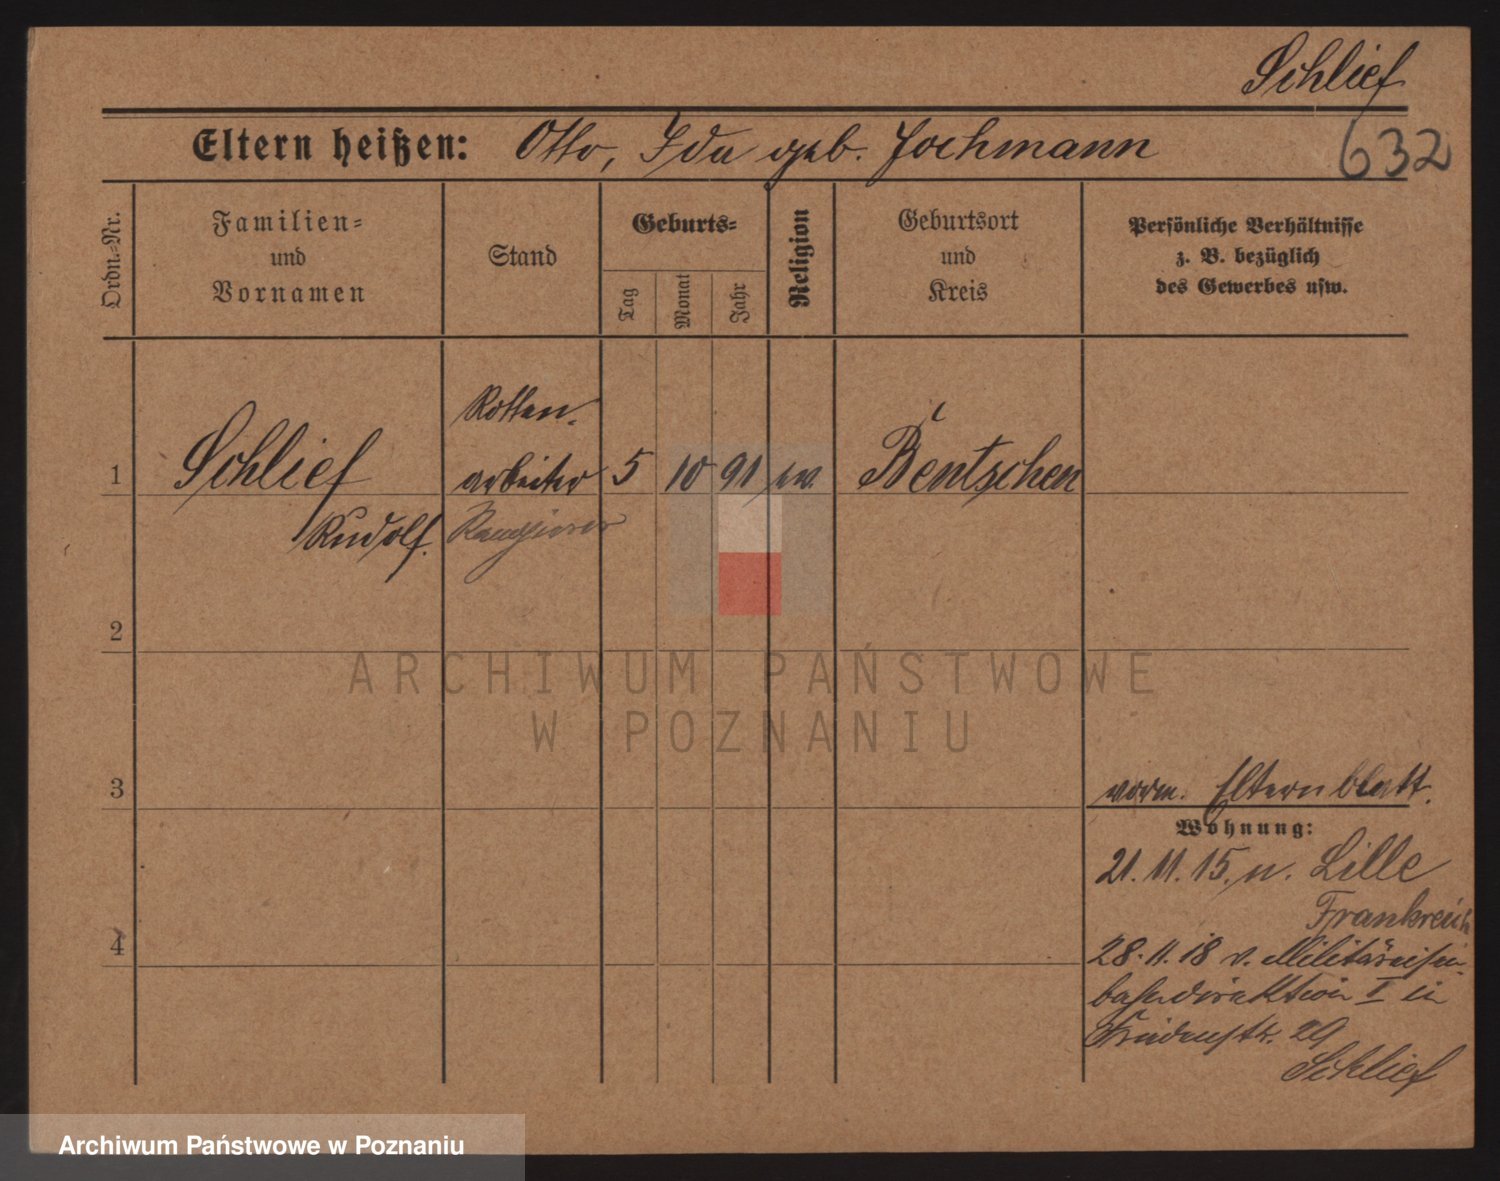 Schlief
Eltern heißen: Otto, Ida geb. Jochmann
632
Ordn.-Nr.
Familien-
und
Vornamen
Stand
Geburts-
Tag
Monat
Jahr
Religion
Geburtsort
und
Kreis
Persönliche Verhältnisse
z. B. bezüglich
des Gewerbes usw.
Rotten-
1 Schlief arbeiter 5 10 91 ev. Bentschen
Rudolf. Rangierer
2
ARCHIWUM PAŃSTWOWE
W POZNANIU
3
vorm. Elternblatt.
Wohnung:
21. 11. 15. n. Lille
Frankreich
4
28. 11. 18 v. Militäreisen-
bahndirektion I in
Friedenstr. 29
Schlief
Archiwum Państwowe w Poznaniu